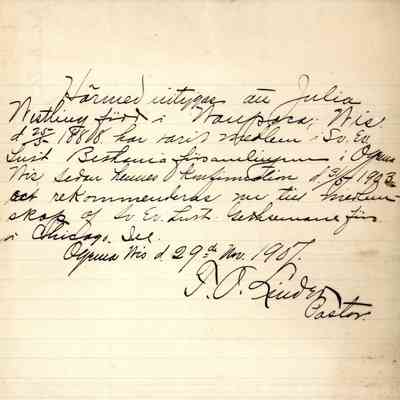 Härmed intygas att Julia
Westling född i Waupaca, Wis
d 25/5 1888 har varit medlem i Sv. Ev.
Luth Bethania församlingen i Ogema
Wis sedan hennes konfirmation d. 3/5 1903
och rekommenderas nu till medlem-
skap af Sv Ev. Luth. Gethsemane förs.
i Chicago. Ill.
Ogema Wis d 29th Nov. 1907.
J. O. Linder
Pastor.